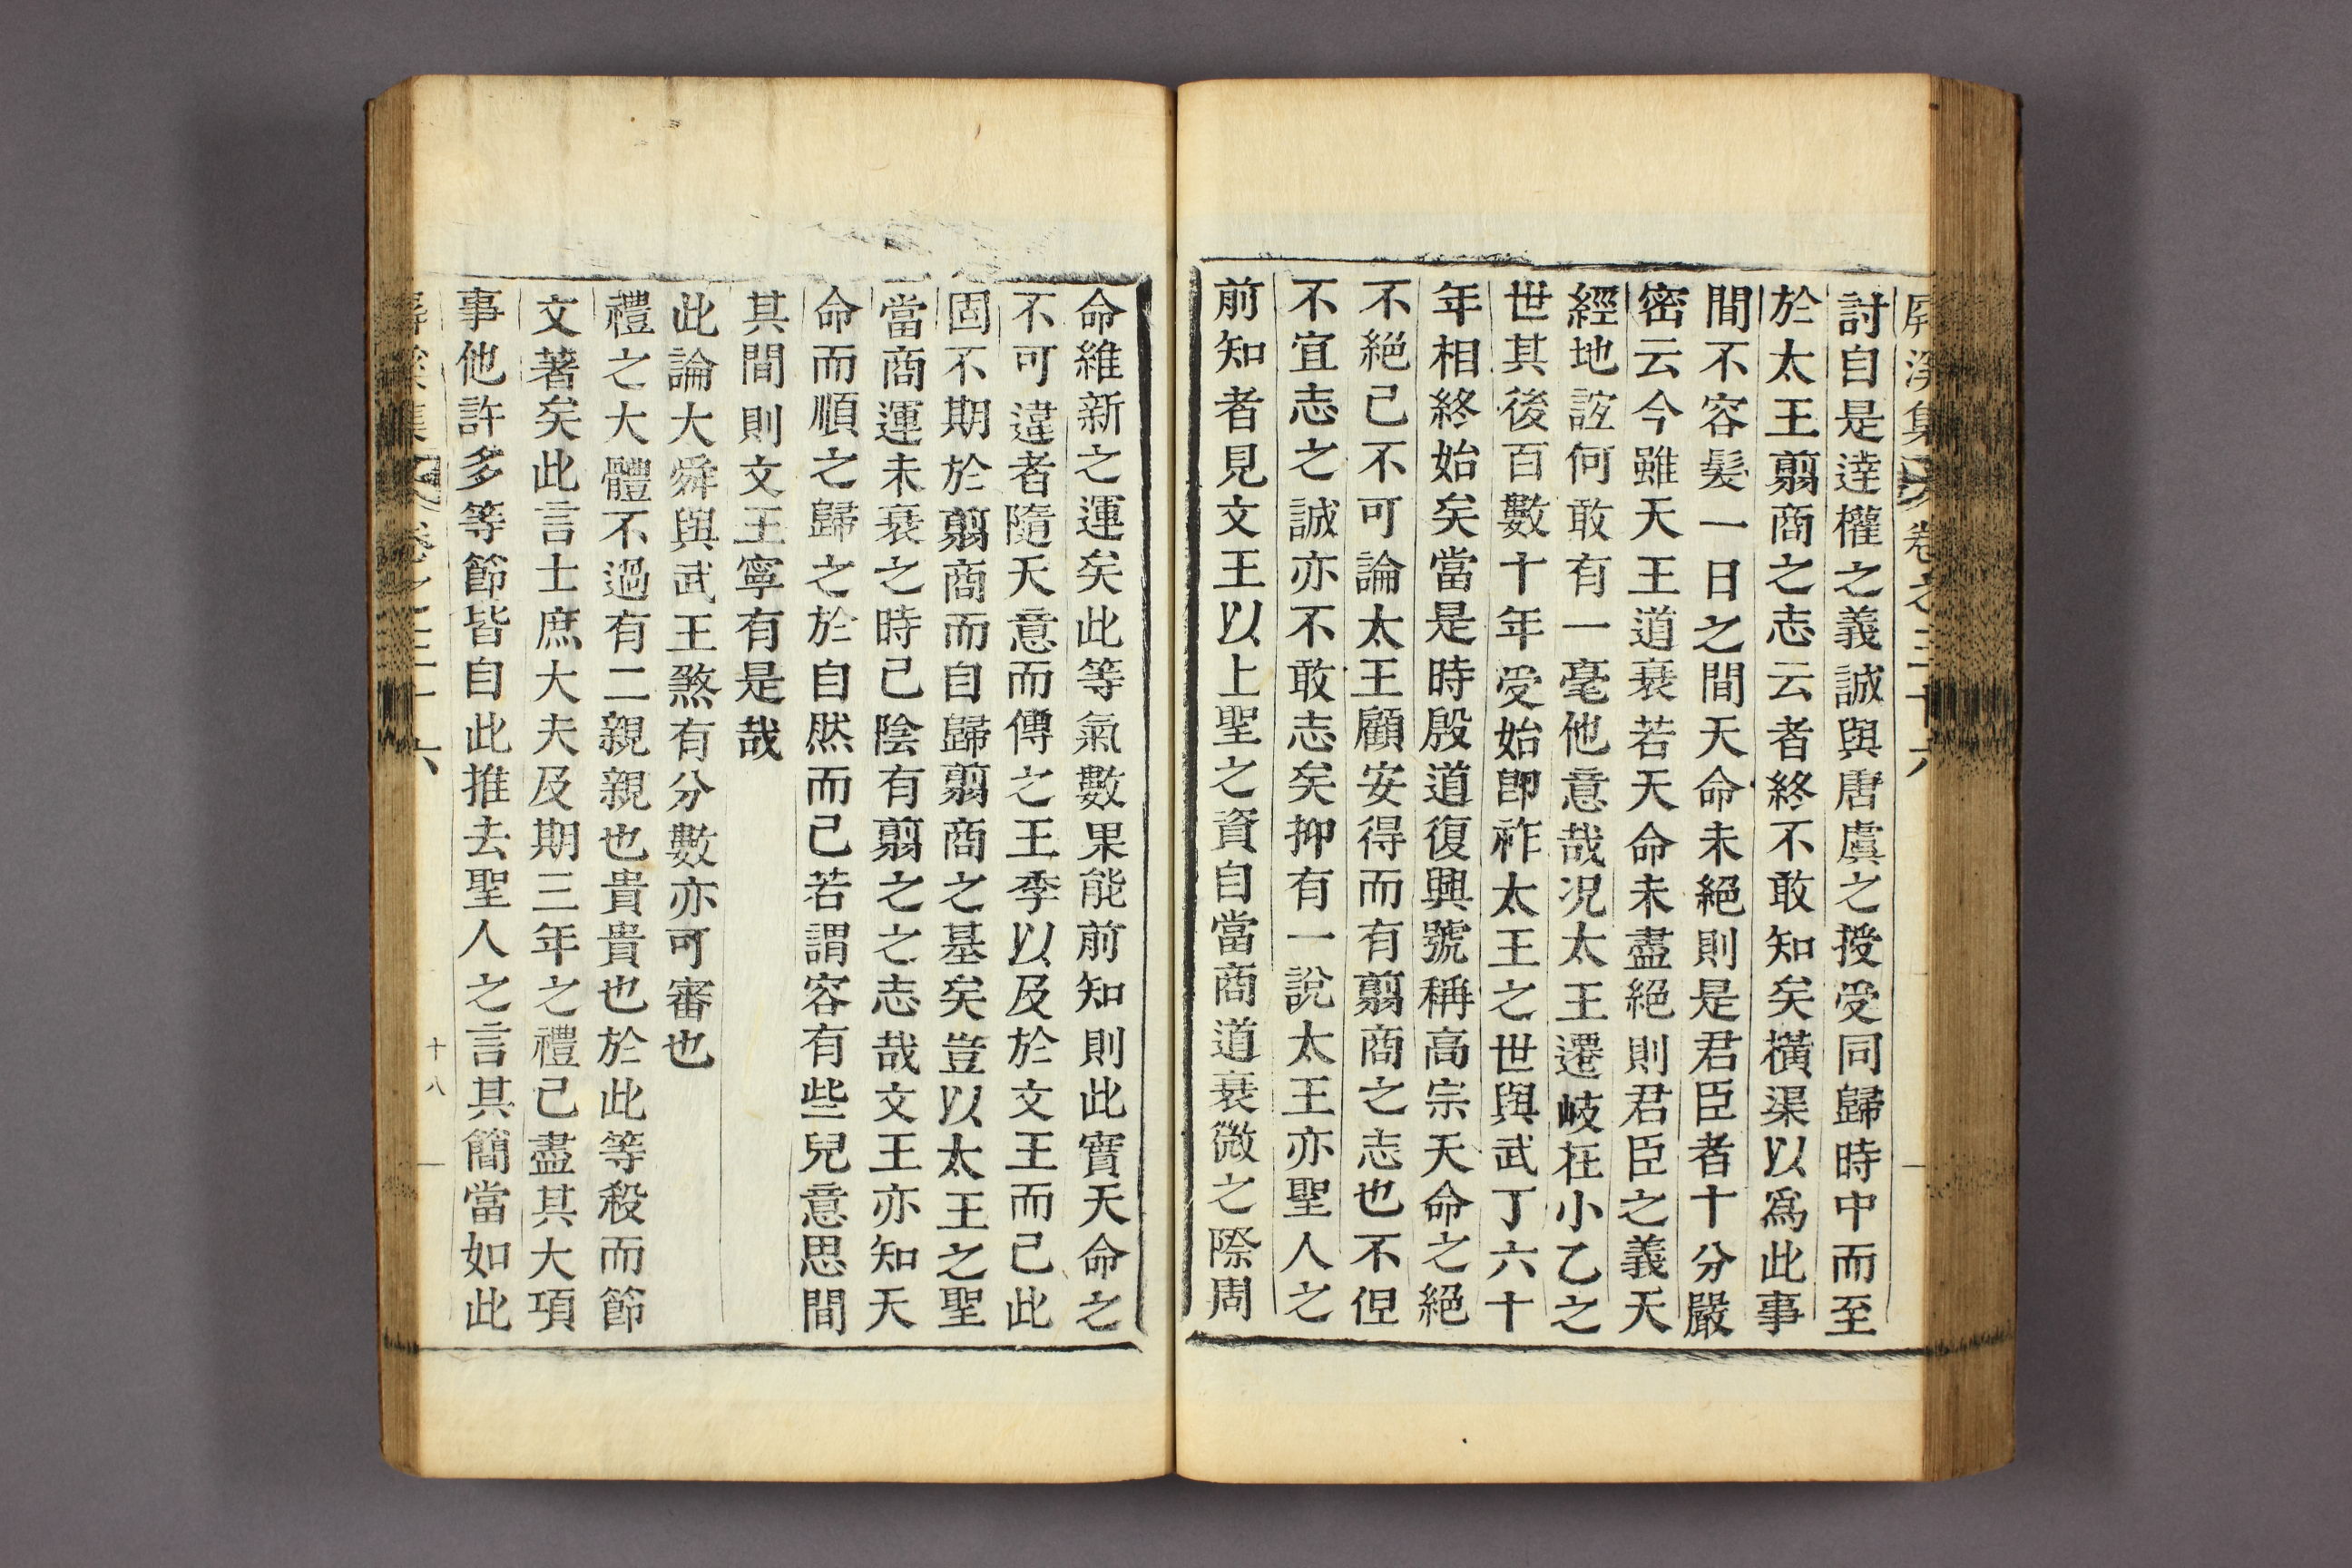 屛溪集 卷之三十六
討自是達權之義誠與唐虞之授受同歸時中而至
於太王翦商之志云者終不敢知矣橫渠以爲此事
間不容髮一日之間天命未絕則是君臣者十分嚴
密云今雖天王道衰若天命未盡絕則君臣之義天
經地誼何敢有一毫他意哉况太王遷岐在小乙之
世其後百數十年受始卽祚太王之世與武丁六十
年相終始矣當是時殷道復興號稱高宗天命之絕
不絕已不可論太王顧安得而有翦商之志也不但
不宜志之誠亦不敢志矣抑有一說太王亦聖人之
前知者見文王以上聖之資自當商道衰微之際周
命維新之運矣此等氣數果能前知則此實天命之
不可違者隨天意而傳之王季以及於文王而已此
固不期於翦商而自歸翦商之基矣豈以太王之聖
當商運未衰之時已陰有翦之之志哉文王亦知天
命而順之歸之於自然而已若謂容有些兒意思間
其間則文王寧有是哉
此論大舜與武王煞有分數亦可審也
禮之大體不過有二親親也貴貴也於此等殺而節
文著矣此言士庶大夫及期三年之禮已盡其大項
事他許多等節皆自此推去聖人之言其簡當如此
屛溪集 卷之三十六 十八